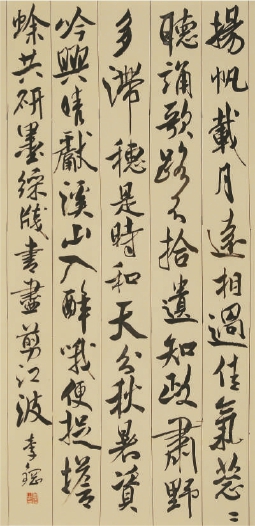 揚帆載月遠相過佳氣葱〻
聽誦歌路不拾遺知政肅野
多滯穗是時和天分秋暑資
吟興晴獻溪山入醉哦便捉蟾
蜍共研墨綵牋書盡剪江波 李